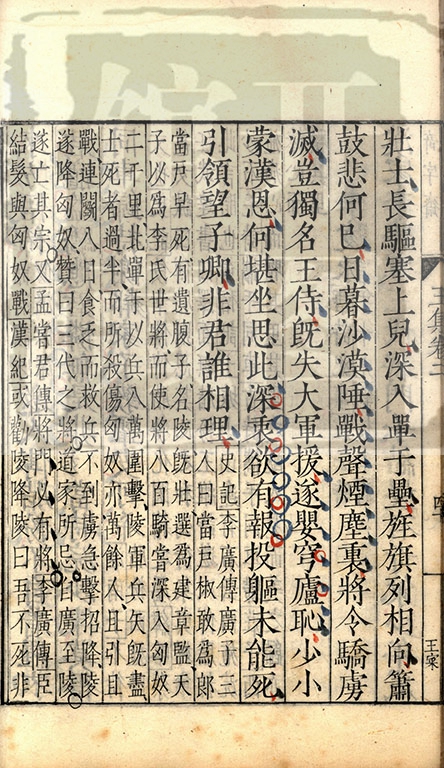 壯士長驅塞上兒深入單于壘旌旗列相向簫
鼓悲何已日暮沙漠陲戰聲煙塵裏將令驕虜
滅豈獨名王侍既失大軍援遂嬰穹廬恥少小
蒙漢恩何堪坐思此深衷欲有報投軀未能死
引領望子卿非君誰相理
史記李廣傳廣子三
人曰當戶椒敢為郎
當戶早死有遺腹子名陵既壯選為建章監天
子以為李氏世將而使將八百騎嘗深入匈奴
二千里北單于以兵八萬圍擊陵軍兵矢既盡
士死者過半而所殺傷匈奴亦萬餘人且引且
戰連鬭八日食乏而救兵不到虜急擊招降陵
遂降匈奴贊曰三代之將道家所忌自廣至陵
遂亡其宗又孟嘗君傳將門必有將李廣傳臣
結髮與匈奴戰漢紀或勸陵降陵曰吾不死非
王寀